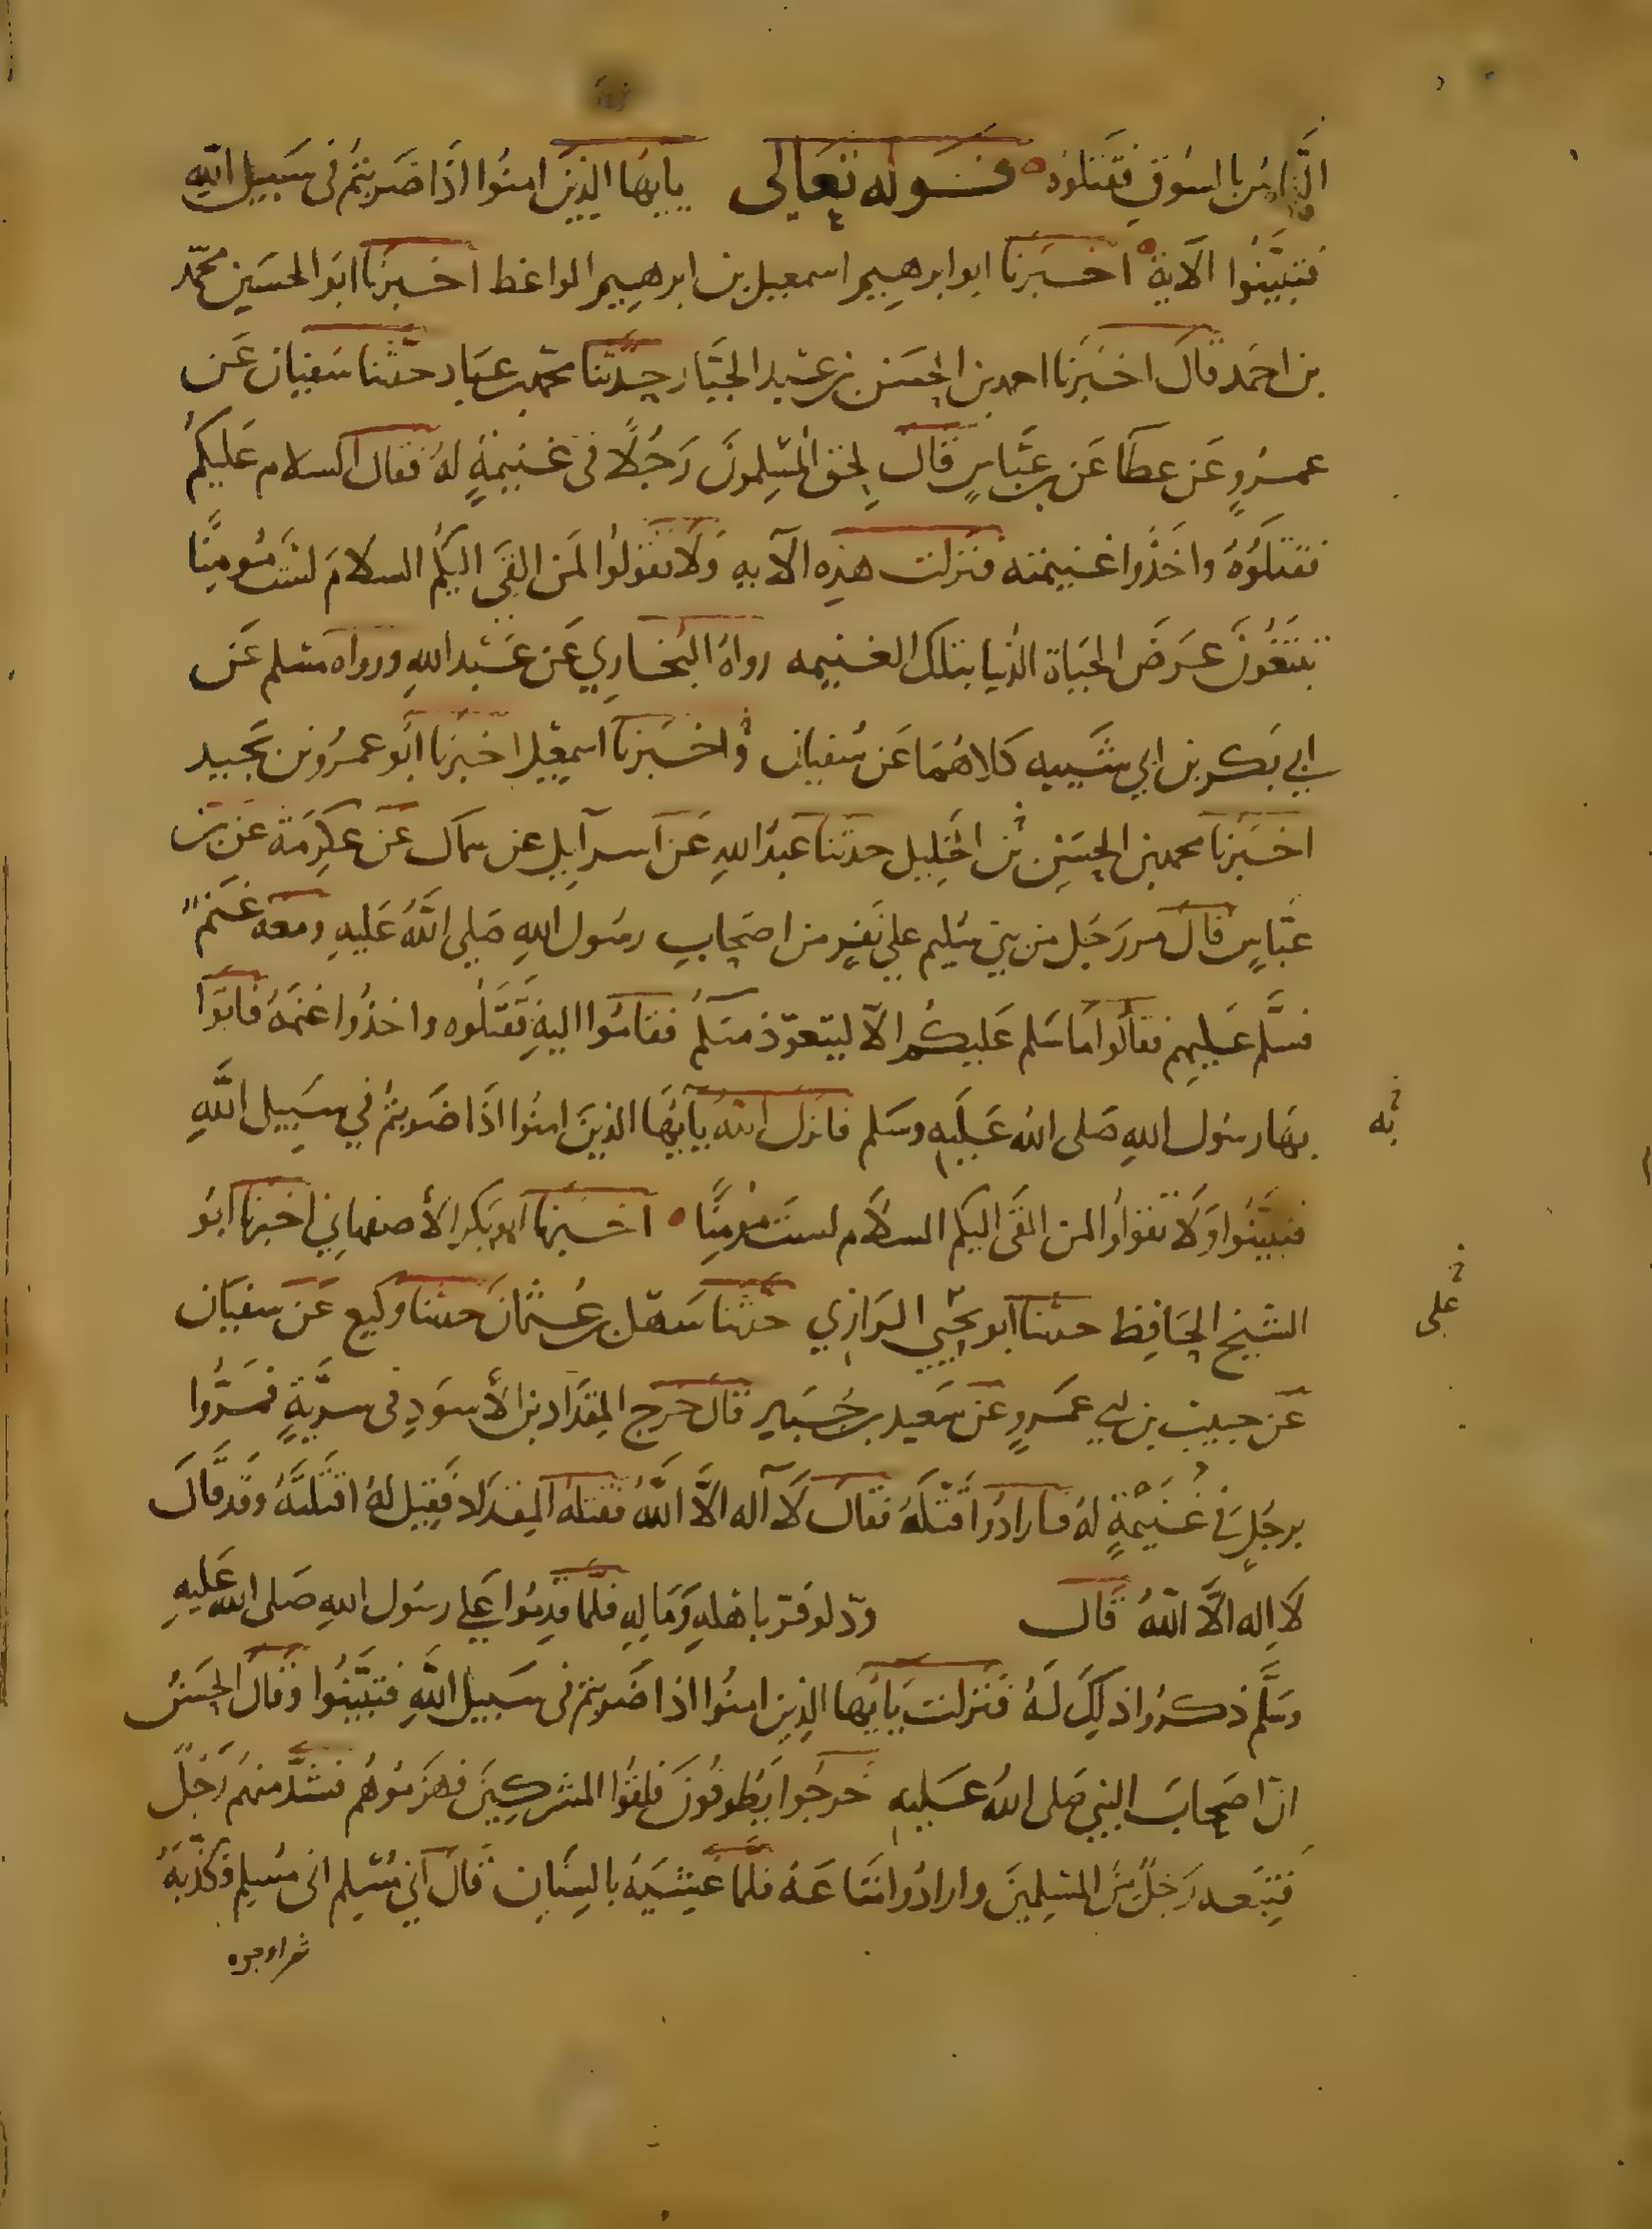 الناس بالسوق فقتلوه قوله تعالى يايها الذين امنوا اذا ضربتم فى سبيل الله
فتبينوا الآية اخبرنا ابو ابرهيم اسمعيل بن ابرهيم الواعظ اخبرنا ابو الحسين محمد
بن احمد قال اخبرنا احمد بن الحسن بن عبد الجبار حدثنا محمد بن عباد حدثنا سفيان عن
عمرو عن عطا عن بن عباس قال لحق المسلمون رجلا فى غنيمة له فقال السلام عليكم
فقتلوه واخذوا غنيمته فنزلت هذه الآيه ولا تقولوا لمن القى اليكم السلام لست مومنا
تبتغون عرض الحياة الدنيا بتلك الغنيمه رواه البخاري عن عبد الله ورواه مسلم عن
ابي بكر بن ابي شيبه كلاهما عن سفيان واخبرنا اسمعيل اخبرنا ابو عمرو بن نجيد
اخبرنا محمد بن الحسين بن الخليل حدثنا عبد الله عن اسرآيل عن سماك عن عكرمة عن بن
عباس قال مر رجل من بني سليم على نفر من اصحاب رسول الله صلى الله عليه ومعه غنم
فسلم عليهم فقالوا ما سلم عليكم الا ليتعوذ منكم فقاموا اليه فقتلوه واخذوا غنمه فاتوا
بها رسول الله صلى الله عليه وسلم فانزل الله يآيها الذين امنوا اذا ضربتم في سبيل الله
به
فتبينوا ولا تقولوا لمن القى اليكم السلام لست مومنا اخبرنا ابو بكر الأصفهاني اخبرنا ابو
الشيخ الحافظ حدثنا ابو يحيى الرازي حدثنا سهل بن عثمان حدثنا وكيع عن سفيان
على
عن حبيب بن ابي عمرو عن سعيد بن جبير قال خرج المقداد بن الأسود فى سرية فمروا
برجل في غنيمة له فارادوا قتله فقال لا آله الا الله فقتله المقداد فقيل له اقتلته وقد قال
لا اله الا الله قال ود لو فر باهله وماله فلما قدموا على رسول الله صلى الله عليه
وسلم ذكروا ذلك له فنزلت يايها الذين امنوا اذا ضربتم فى سبيل الله فتبينوا وقال الحسن
ان اصحاب النبي صلى الله عليه خرجوا يطوفون فلقوا المشركين فهزموهم فشد منهم رجل
فتبعه رجل من المسلمين وارادوا متاعه فلما غشيه بالسنان قال اني مسلم انى مسلم فكذبه